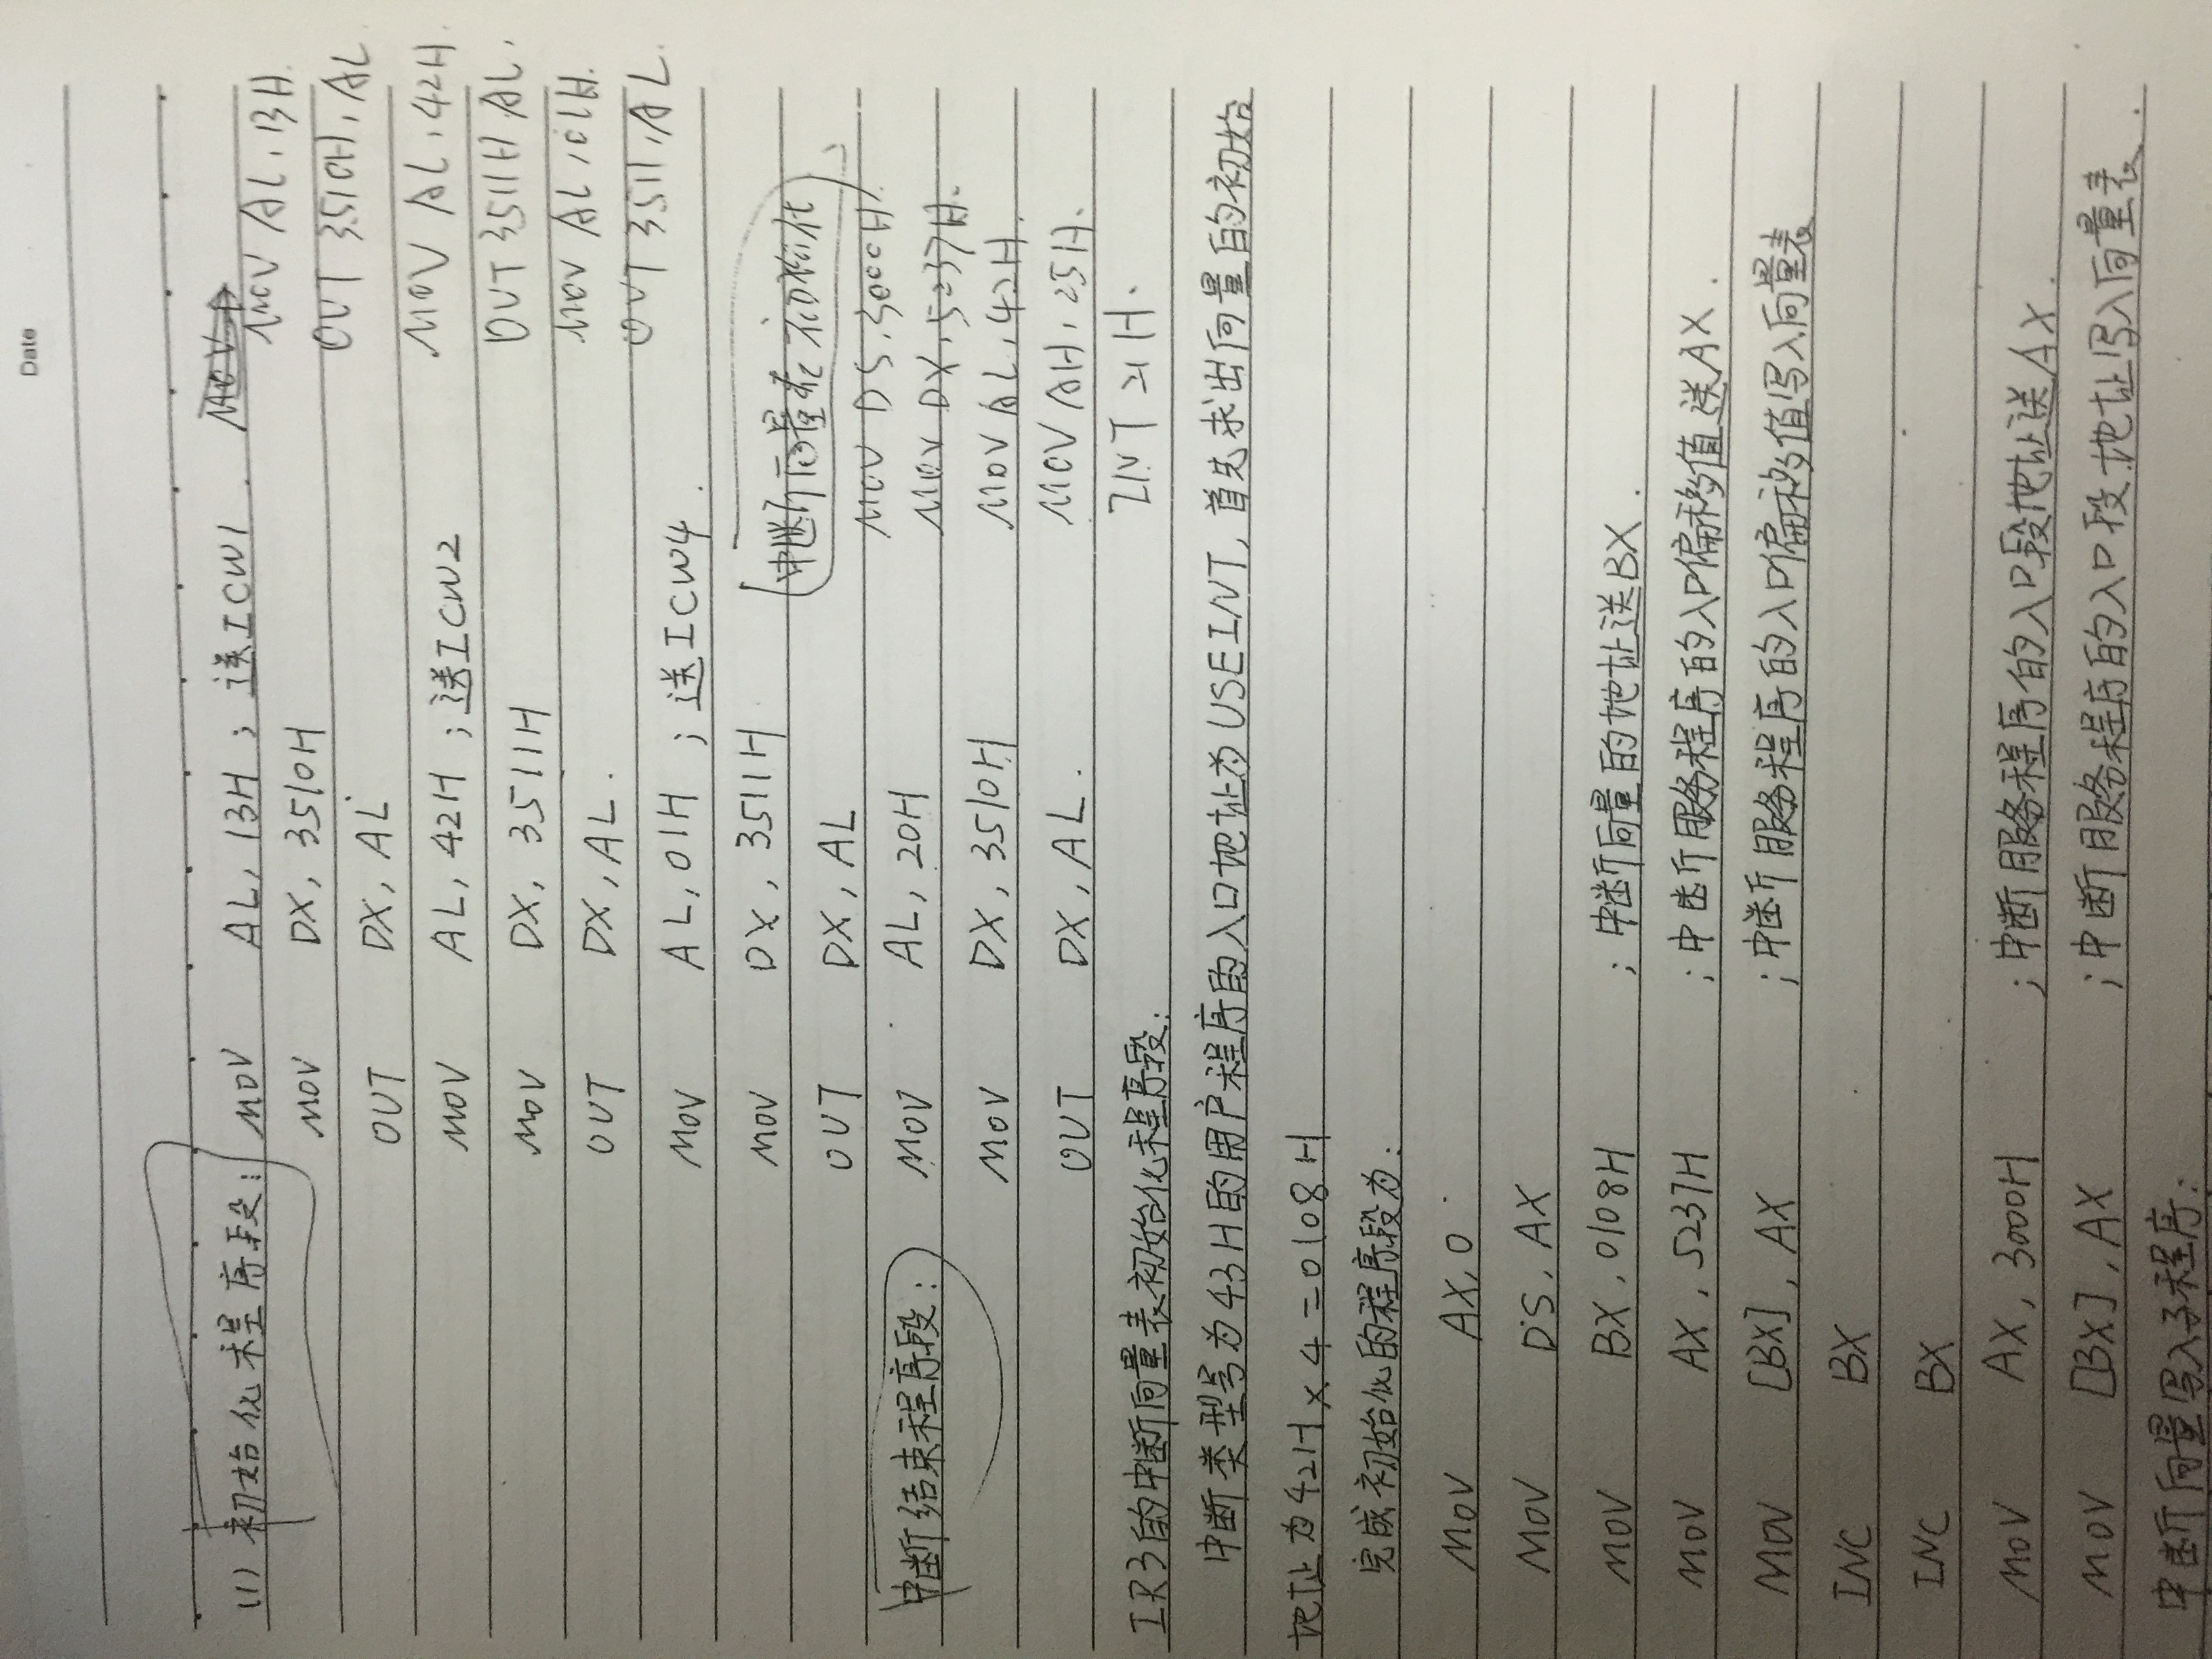 Date
(1) 初始化程序段: MOV AL, 13H ; 送ICW1.
MOV DX, 3510H
OUT DX, AL
MOV AL, 42H ; 送ICW2
MOV DX, 3511H
OUT DX, AL.
MOV AL, 01H ; 送ICW4.
MOV DX, 3511H
OUT DX, AL
中断结束程序段: MOV AL, 20H
MOV DX, 3510H
OUT DX, AL.
MOV AL, 13H.
OUT 3510H, AL
MOV AL, 42H.
OUT 3511H AL.
MOV AL, 01H.
OUT 3511, AL.
中断向量表初始化
MOV DS, 3000H.
MOV DX, 5237H.
MOV AL, 42H.
MOV AH, 25H.
INT 21H.
IR3的中断向量表初始化程序段:
中断类型号为43H的用户程序的入口地址为USEINT, 首先求出向量的初始
地址为42H×4=0108H
完成初始化的程序段为:
MOV AX, 0
MOV DS, AX
MOV BX, 0108H ; 中断向量的地址送BX.
MOV AX, 5237H ; 中断服务程序的入口偏移值送AX.
MOV [BX], AX ; 中断服务程序的入口偏移值写入向量表
INC BX
INC BX
MOV AX, 3000H ; 中断服务程序的入口段地址送AX.
MOV [BX], AX ; 中断服务程序的入口段地址写入向量表.
中断向量写入子程序: